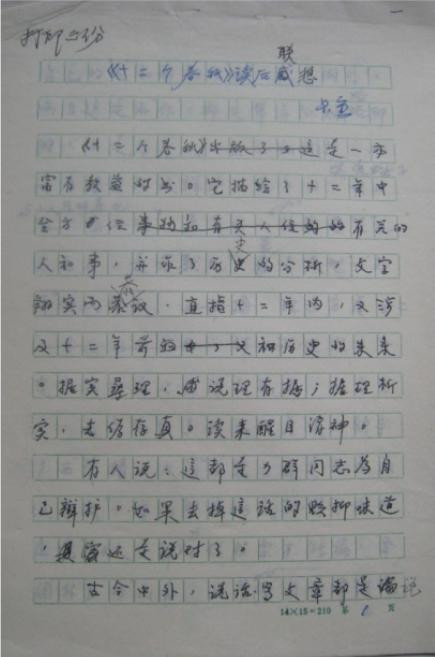 打印六份
《十二个春秋》读后联想
《十二个春秋》出版了，这是一部
富有教益的书。它描绘了十二年中
全方位事物和有关人物的有关的
人和事，并作了历史的分析，文字
翔实而恭议，直指十二年内，又涉
及十二年前的和历史的未来
。据实寻理，成说理有据；据理析
实，去伪存真。读来醒目清神。
有人说：这都是力群同志为自
己辩护。如果去掉这话的贬抑味道
，其实还是说对了。
古今中外，说话写文章都是论说
14×15=210 第 1 页